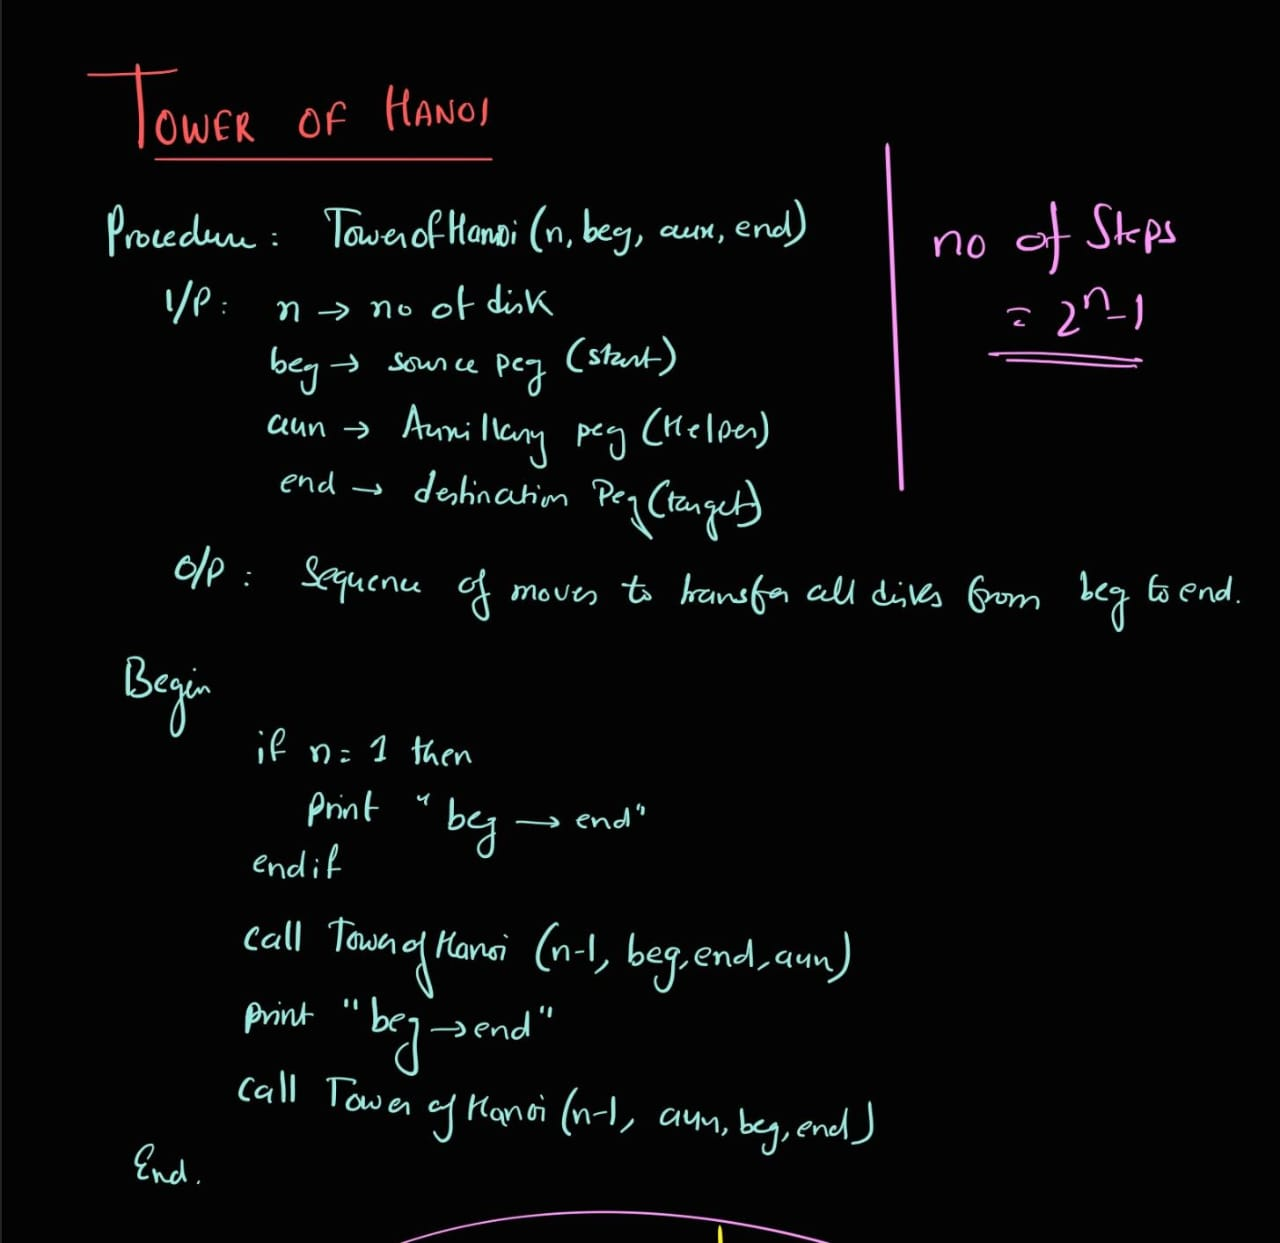 TOWER OF HANOI
Procedure : TowerofHanoi (n, beg, aux, end)
I/P : n → no of disk
beg → source peg (start)
aux → Auxillary peg (Helper)
end → destination Peg (target)
O/P : Sequence of moves to transfer all disks from beg to end.
Begin
if n = 1 then
Print "beg → end"
endif
call TowerofHanoi (n-1, beg, end, aux)
print "beg → end"
call Tower of Hanoi (n-1, aux, beg, end)
End.
no of Steps
= 2ⁿ-1